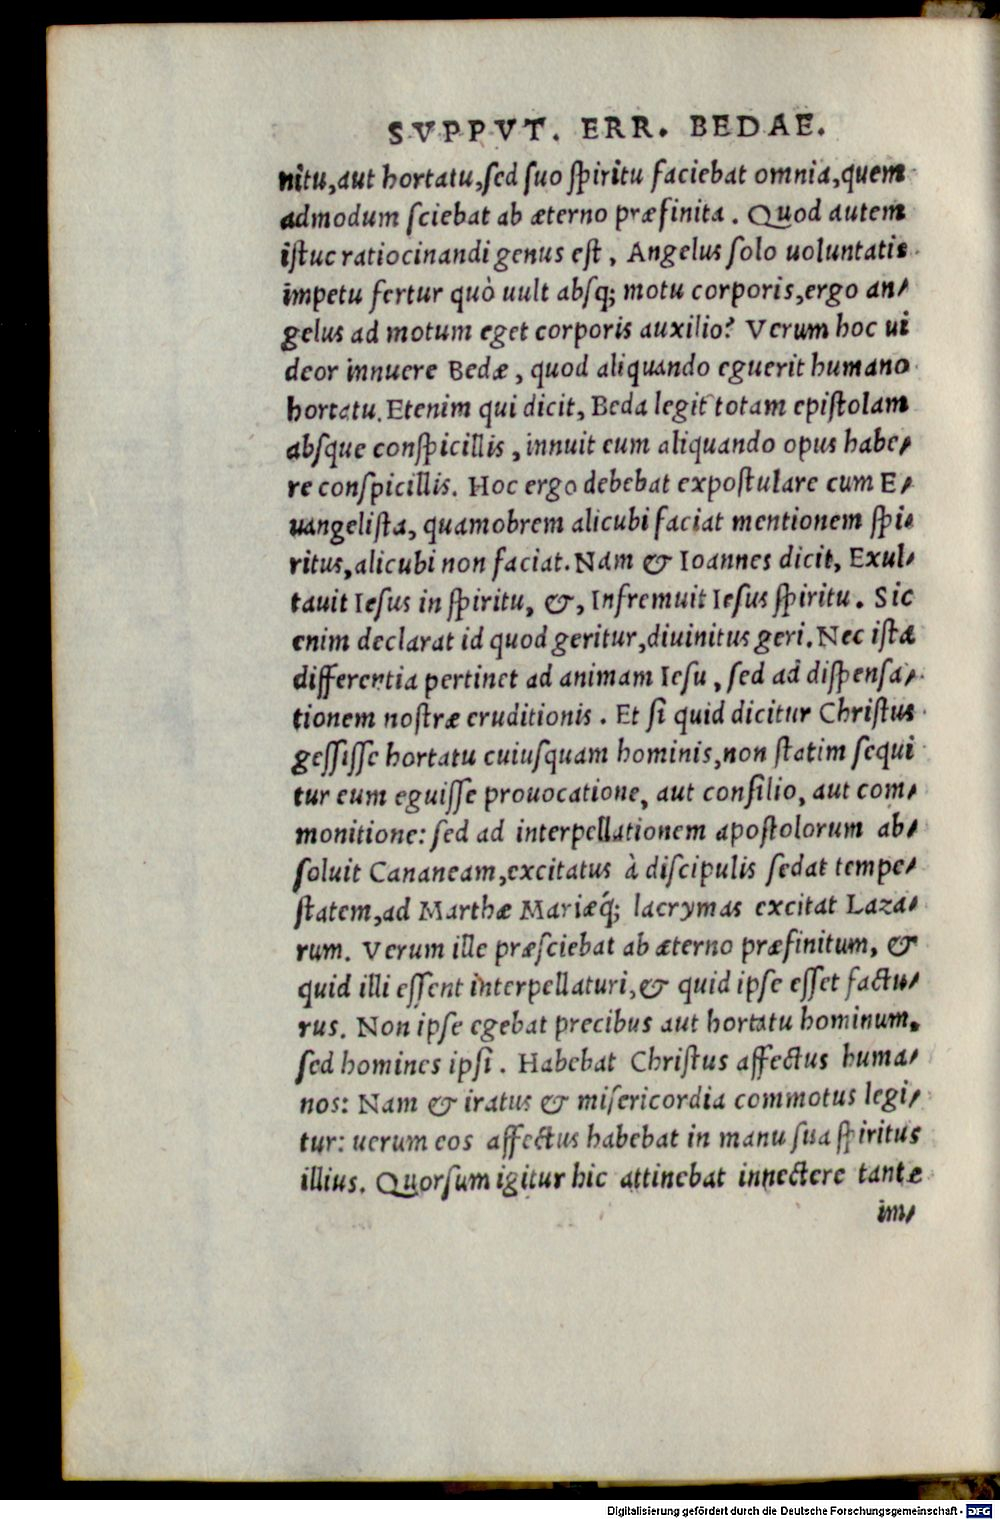 SVPPVT. ERR. BEDAE.
nitu, aut hortatu, ſed ſuo ſpiritu faciebat omnia, quem
admodum ſciebat ab æterno præfinita. Quod autem
iſtuc ratiocinandi genus eſt, Angelus ſolo uoluntatis
impetu fertur quò uult abſq; motu corporis, ergo an⸗
gelus ad motum eget corporis auxilio? Verum hoc ui
deor innuere Bedæ, quod aliquando eguerit humano
hortatu. Etenim qui dicit, Beda legit totam epiſtolam
abſque conſpicillis, innuit eum aliquando opus habe⸗
re conſpicillis. Hoc ergo debebat expoſtulare cum E⸗
uangeliſta, quamobrem alicubi faciat mentionem ſpi⸗
ritus, alicubi non faciat. Nam & Ioannes dicit, Exul⸗
tauit Ieſus in ſpiritu, &, Infremuit Ieſus ſpiritu. Sic
enim declarat id quod geritur, diuinitus geri. Nec iſta
differentia pertinet ad animam Ieſu, ſed ad diſpenſa⸗
tionem noſtræ eruditionis. Et ſi quid dicitur Chriſtus
geſſiſſe hortatu cuiuſquam hominis, non ſtatim ſequi
tur eum eguiſſe prouocatione, aut conſilio, aut com⸗
monitione: ſed ad interpellationem apoſtolorum ab⸗
ſoluit Cananeam, excitatus à diſcipulis ſedat tempe⸗
ſtatem, ad Marthæ Mariæq́; lacrymas excitat Laza⸗
rum. Verum ille præſciebat ab æterno præfinitum, &
quid illi eſſent interpellaturi, & quid ipſe eſſet factu⸗
rus. Non ipſe egebat precibus aut hortatu hominum,
ſed homines ipſi. Habebat Chriſtus affectus huma⸗
nos: Nam & iratus & miſericordia commotus legi⸗
tur: uerum eos affectus habebat in manu ſua ſpiritus
illius. Quorſum igitur hic attinebat innectere tantæ
im⸗
Digitalisierung gefördert durch die Deutsche Forschungsgemeinschaft - DFG